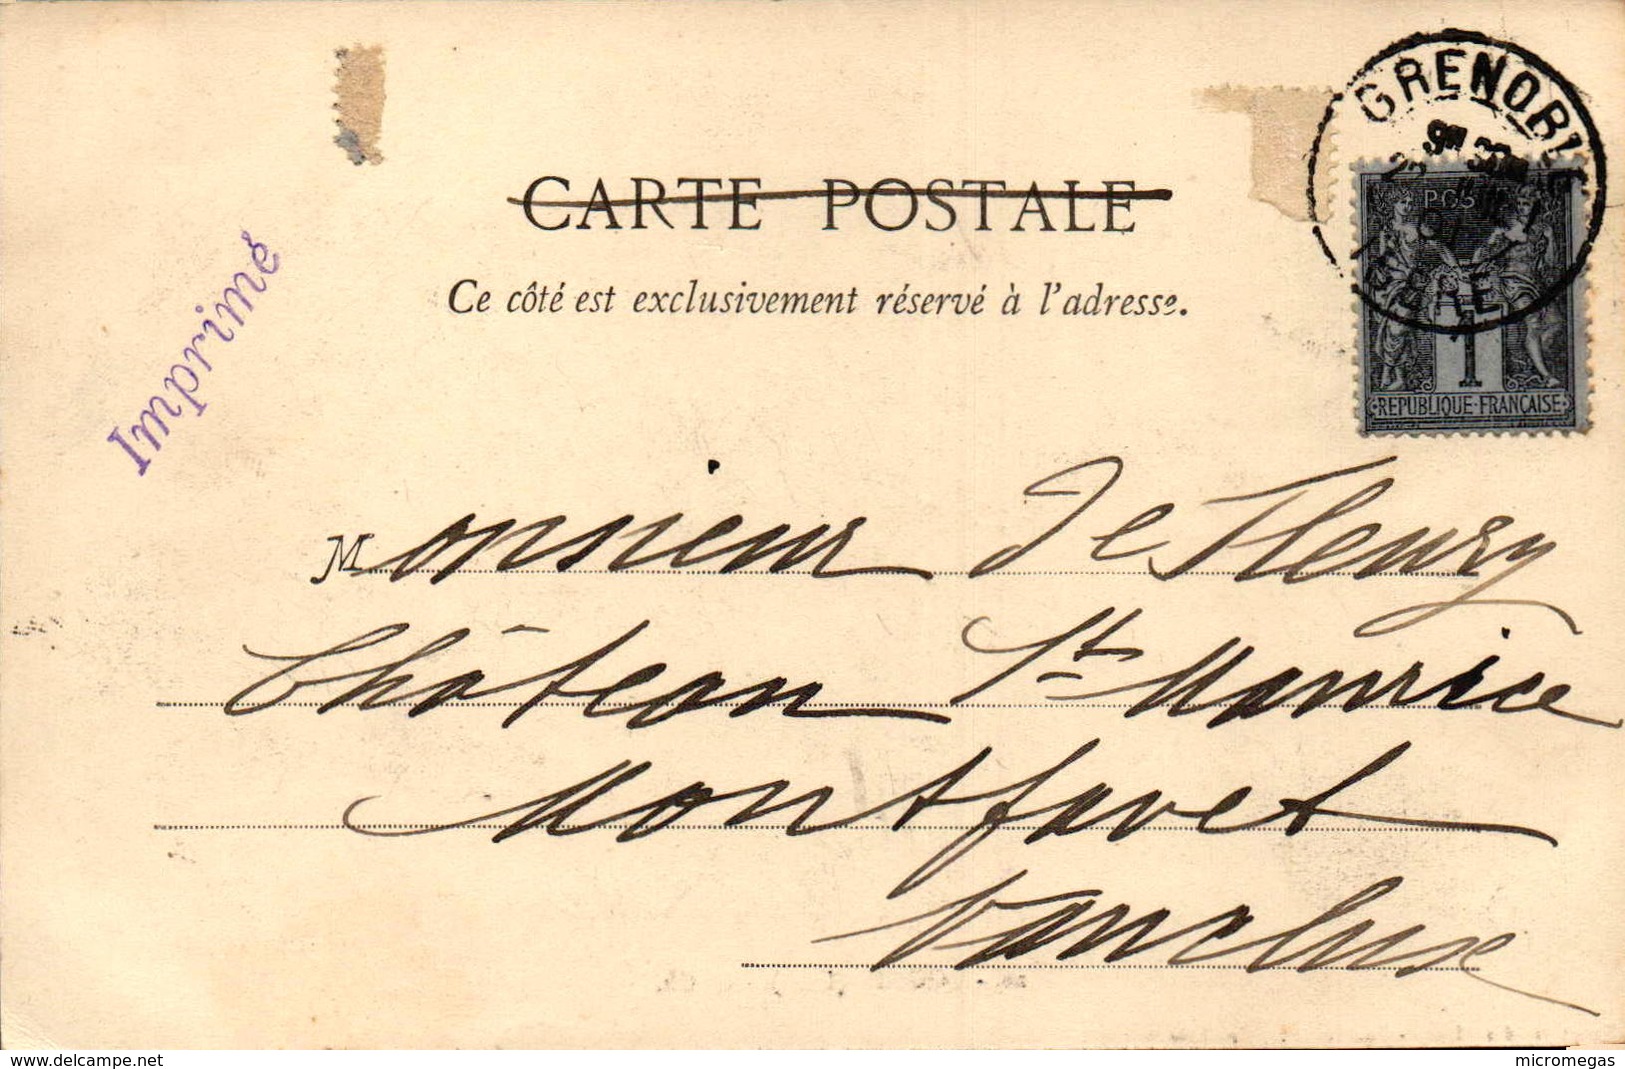 GRENOBLE
CARTE POSTALE
Ce côté est exclusivement réservé à l'adresse.
Imprimé
1
REPUBLIQUE FRANÇAISE
ISERE
Monsieur de Fleury
Château St Maurice
Montfavet
Vaucluse
www.delcampe.net
micromegas